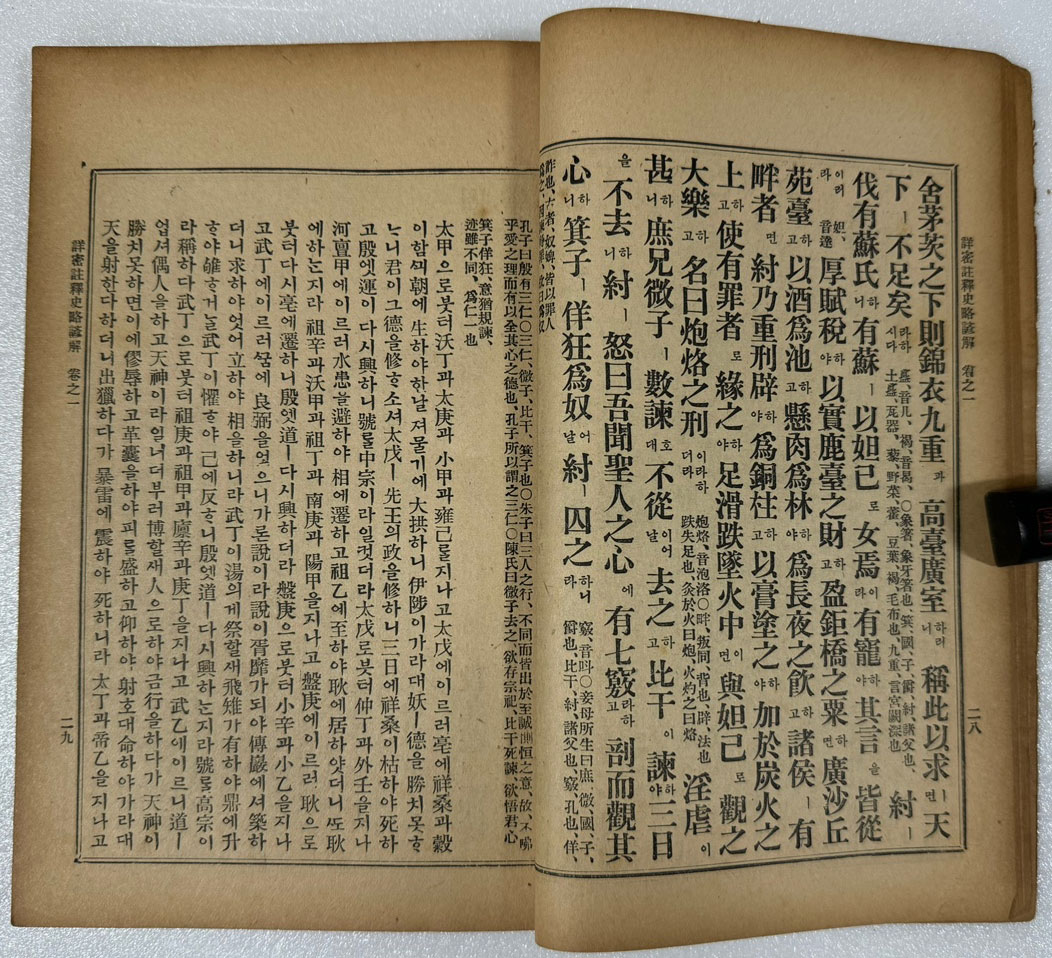 詳密註釋史略諺解 卷之一 二八
舍茅茨之下則錦衣九重과 高臺廣室하려니 稱此以求면 天
下ㅣ不足矣라하시다 簋、音几、褐、音曷、○象箸、象牙箸也、箕、國、子、爵、紂、諸父也、土簋、瓦器、藜、野菜、藿、豆葉、褐、毛布也、九重、言宮闕深也 紂ㅣ
伐有蘇氏하니 有蘇ㅣ以妲己로 女焉라 有寵야 其言을 皆從
이러라 妲、音達 厚賦稅하야 以實鹿臺之財하고 盈鉅橋之粟하며 廣沙丘
苑臺하고 以酒爲池하고 懸肉爲林하야 爲長夜之飮하고 諸侯ㅣ有
畔者면 紂乃重刑辟하야 爲銅柱하고 以膏塗之하야 加於炭火之
上하고 使有罪者로 緣之하야 足滑跌墜火中이면 與妲己로 觀之
大樂하고 名曰炮烙之刑이라하더라 炮烙、音泡洛○畔、叛同、背也、辟、法也、跌失足也、灸於火曰炮、火灼之曰烙 淫虐이
甚하니 庶兄微子ㅣ數諫호대 不從이어날 去之하고 比干이 諫三日하야
을不去하니 紂ㅣ怒曰吾聞聖人之心에 有七竅라하고 剖而觀其
心하니 箕子ㅣ佯狂爲奴어날 紂ㅣ囚之하니라 竅、音○妾母所生曰庶、微、國、子、爵也、比干、紂諸父也、竅、孔也、佯、
詐也、奴婢、皆以罪人
孔子曰殷有三仁○三仁、微子、比干、箕子也○朱子曰三人之行、不同而皆出於至誠惻怛之意、故、不咈
乎愛之理而有以全其心之德也、孔子所以謂之三仁○陳氏曰微子去之、欲存宗祀、比干死諫、欲悟君心
箕子佯狂、意猶規諫、
迹雖不同、爲仁一也
太甲으로붓터沃丁과太庚과小甲과雍己를지나고太戊에이르러亳에祥桑과穀
이함朝에生하야한날져물기에大拱하니伊陟이가라대妖ㅣ德을勝치못
니君이그德을修소셔太戊ㅣ先王의政을修하니三日에祥桑이枯하야死하
고殷엣運이다시興하니號를中宗이라일더라太戊로붓터仲丁과外壬을지나
河亶甲에이르러水患을避하야相에遷하고祖乙에至하야耿에居하얏더니耿
에하지라祖辛과沃甲과祖丁과南庚과陽甲을지나고盤庚에이르러耿으로
붓터다시亳에遷하니殷엣道ㅣ다시興하더라盤庚으로붓터小辛과小乙을지나
고武丁에이르러에良弼을얻으니가론說이라說이胥靡가되야傅巖에셔築하
더니求하야엇어立하야相을하니라武丁이湯의게祭할새飛雉가有하야鼎에升
야雊거武丁이懼야己에反니殷엣道ㅣ다시興하지라號를高宗이
라稱하다武丁으로붓터祖庚과祖甲과廩辛과庚丁을지나고武乙에이르니道ㅣ
업셔偶人을하고天神이라일너더부러博할새人으로하야금行을하다가天神이
勝치못하면이에僇辱하고革囊을하야피를盛하고仰하야射호대命하야가라대
天을射한다하더니出獵하다가暴雷에震하야死하니라太丁과帝乙을지나고
詳密註釋史略諺解 卷之一 二九